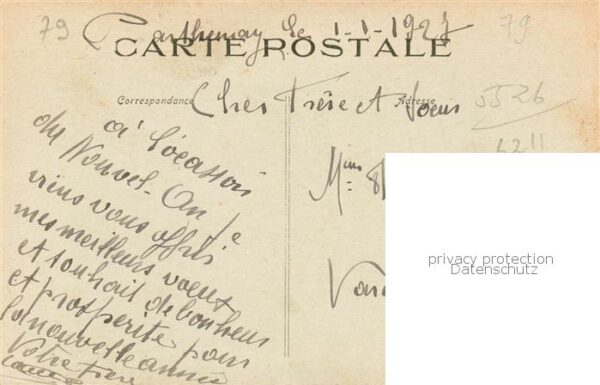 79 Parthenay le 1-1-1927 79
CARTE POSTALE
Correspondance Adresse
Cher Frère et Soeur
5526
6211
a l'ocassion
du Nouvel-An je
viens vous offrir
mes meilleurs voeux
et souhait de bonheur
et prosperite pour
la nouvelle année
Votre frère
Mme
privacy protection
Datenschutz